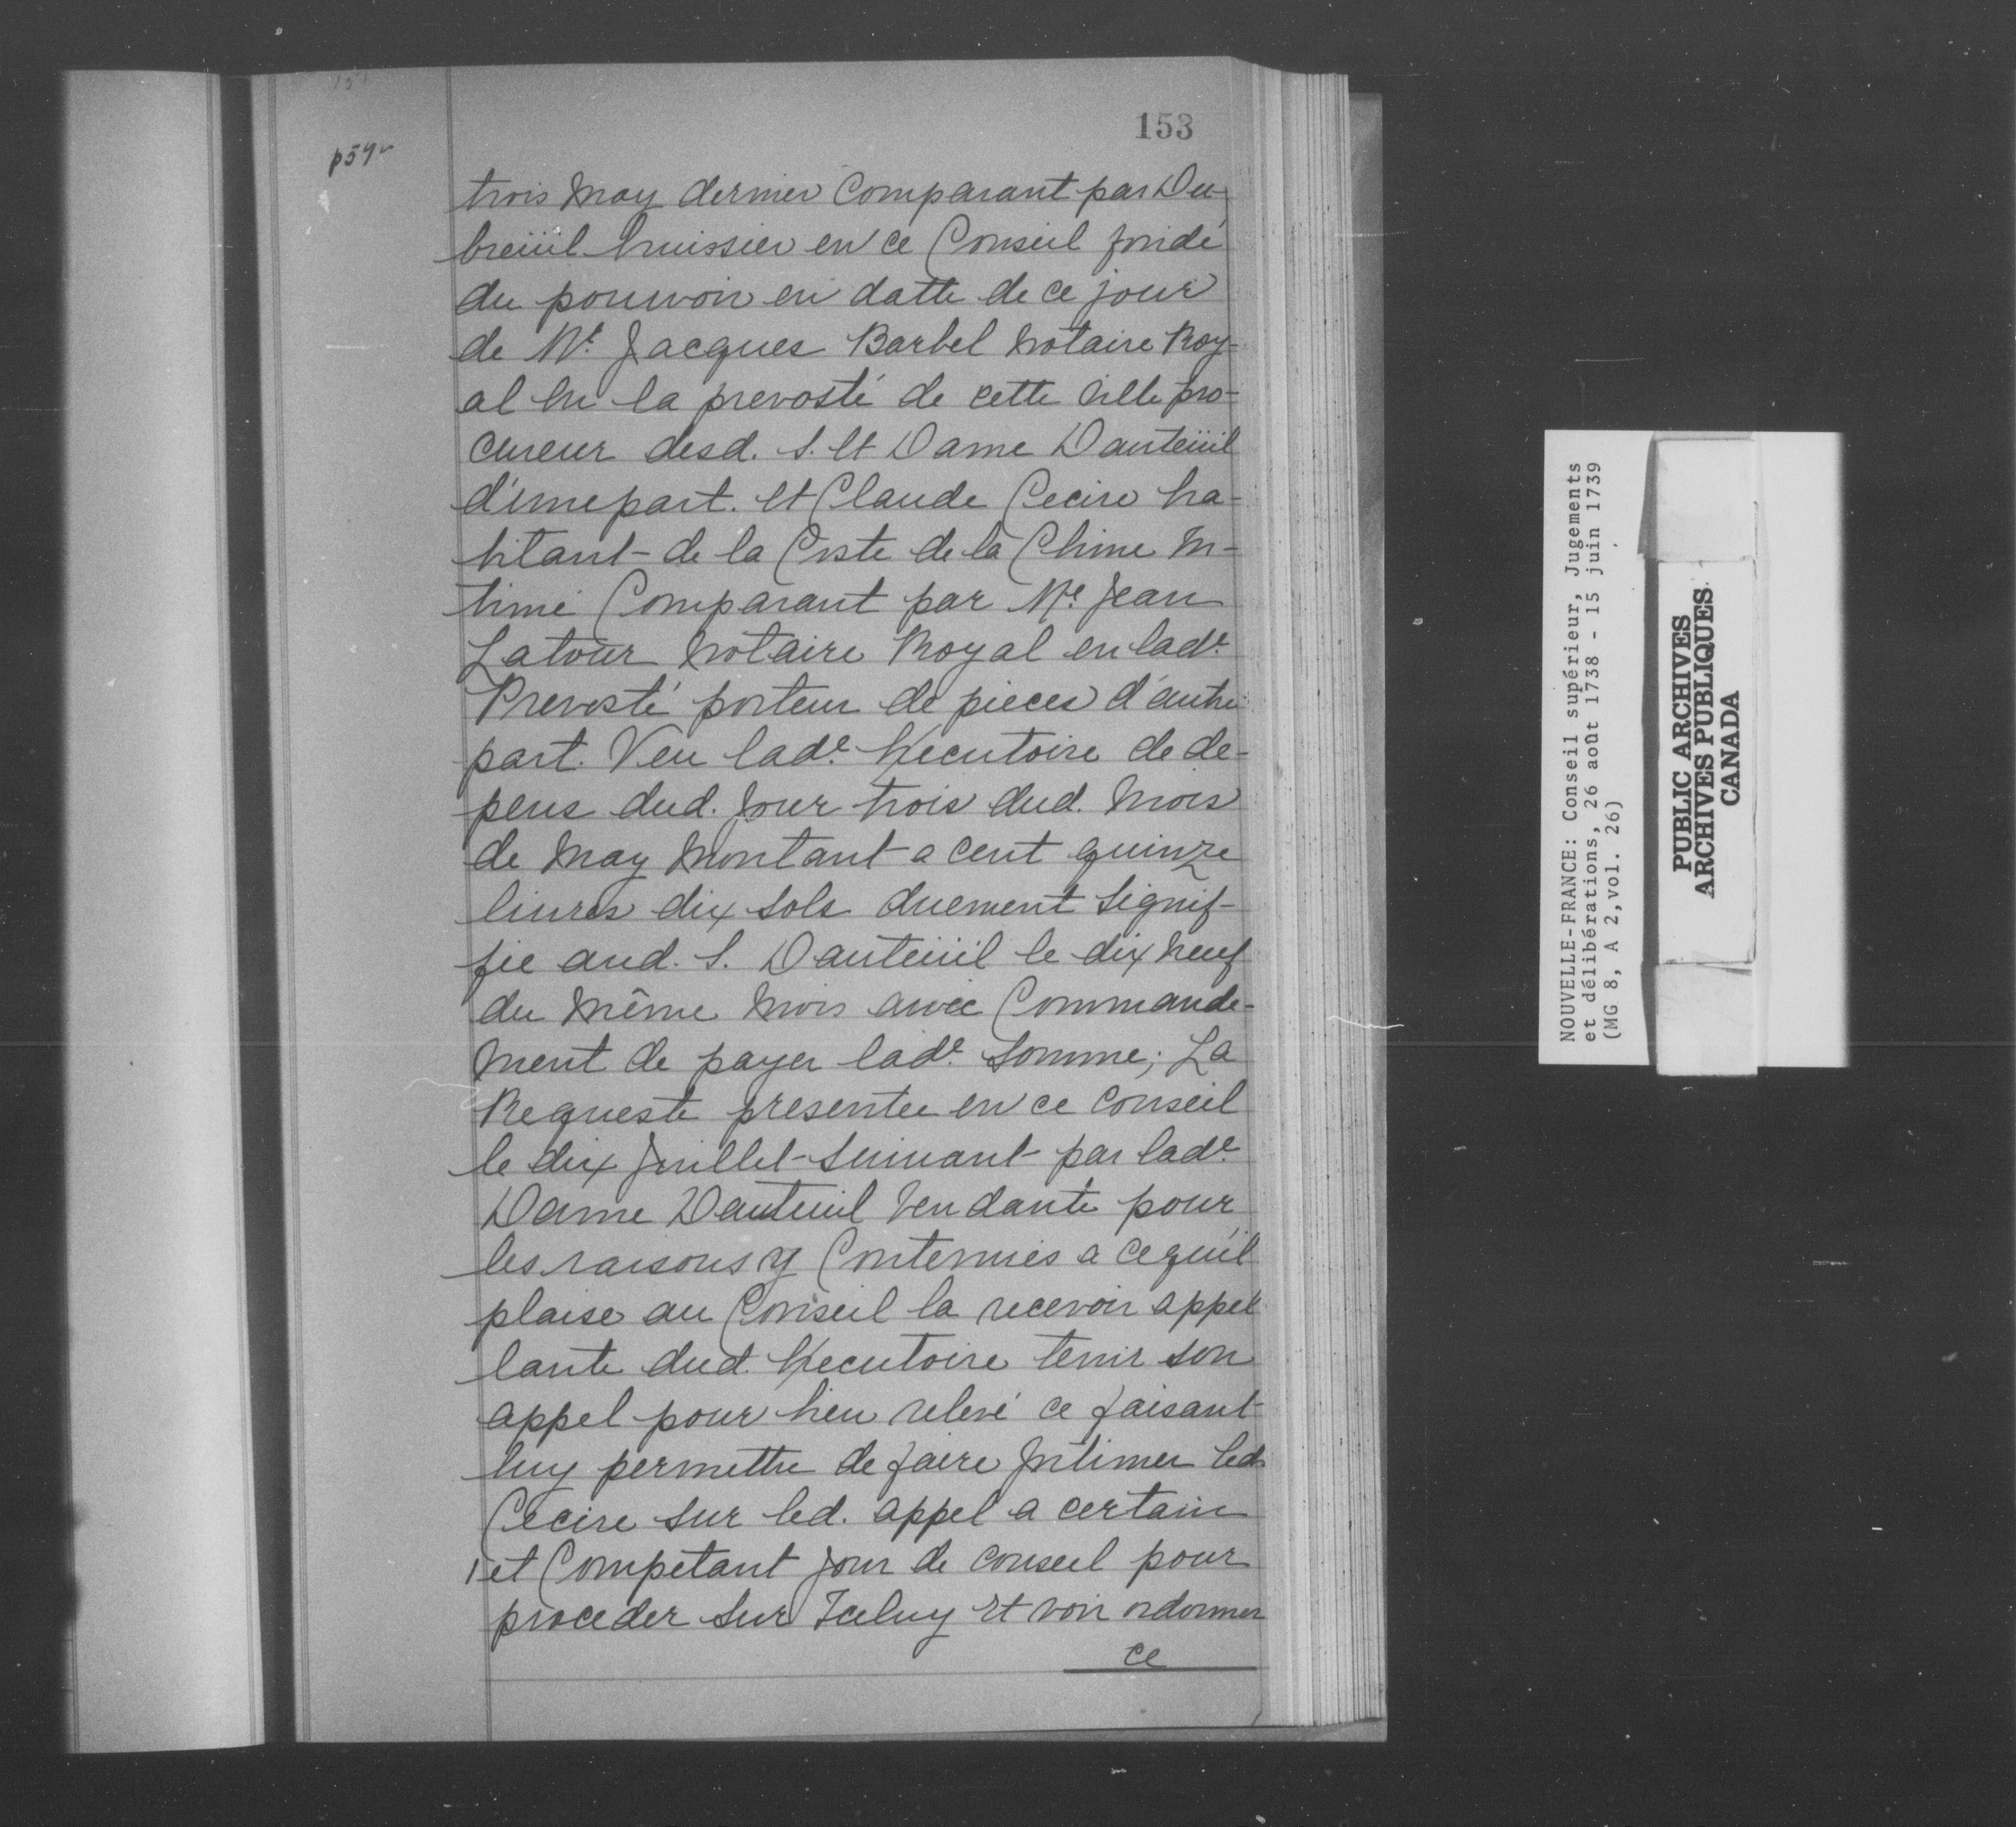 153
p54v
trois May dernier Comparant par Du-
breüil huissier en ce Conseil fondé
du pouvoir en datte de ce jour
de Me. Jacques Barbel Notaire Roy-
al En la prevosté de cette ville pro-
cureur desd. S. Et Dame Dauteüil
d'une part. Et Claude Cecire ha-
bitant de la Coste de la Chine In-
timé Comparant par Me. Jean
Latour Notaire Royal en lade.
Prevosté porteur de pieces d'autre
part. Veu lade. Executoire de de-
pens dud. jour trois dud. Mois
de May Montant a cent quinze
livres dix sols duement signif-
fie aud. S. Dauteüil le dix neuf
du même Mois avec Commande-
ment de payer lade. Somme; La
Requeste presentée en ce Conseil
le dix Juillet Suivant par lade.
Dame Dauteuil tendante pour
les raisons y Contenues a cequ'il
plaise au Conseil la recevoir appel
lante dud. Executoire tenir son
appel pour bien relevé ce faisant
luy permettre de faire Intimer led.
Cecire sur led. appel a certain
et Competant Jour de Conseil pour
proceder sur Iceluy Et voir ordonner
ce
NOUVELLE-FRANCE: Conseil supérieur, Jugements
et délibérations, 26 août 1738 - 15 juin 1739
(MG 8, A 2,vol. 26)
PUBLIC ARCHIVES
ARCHIVES PUBLIQUES
CANADA